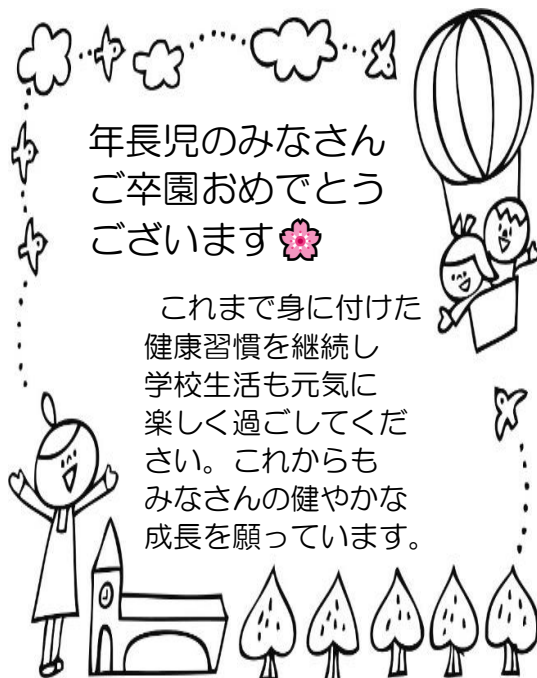 年長児のみなさん
ご卒園おめでとう
ございます🌸
これまで身に付けた
健康習慣を継続し
学校生活も元気に
楽しく過ごしてくだ
さい。これからも
みなさんの健やかな
成長を願っています。